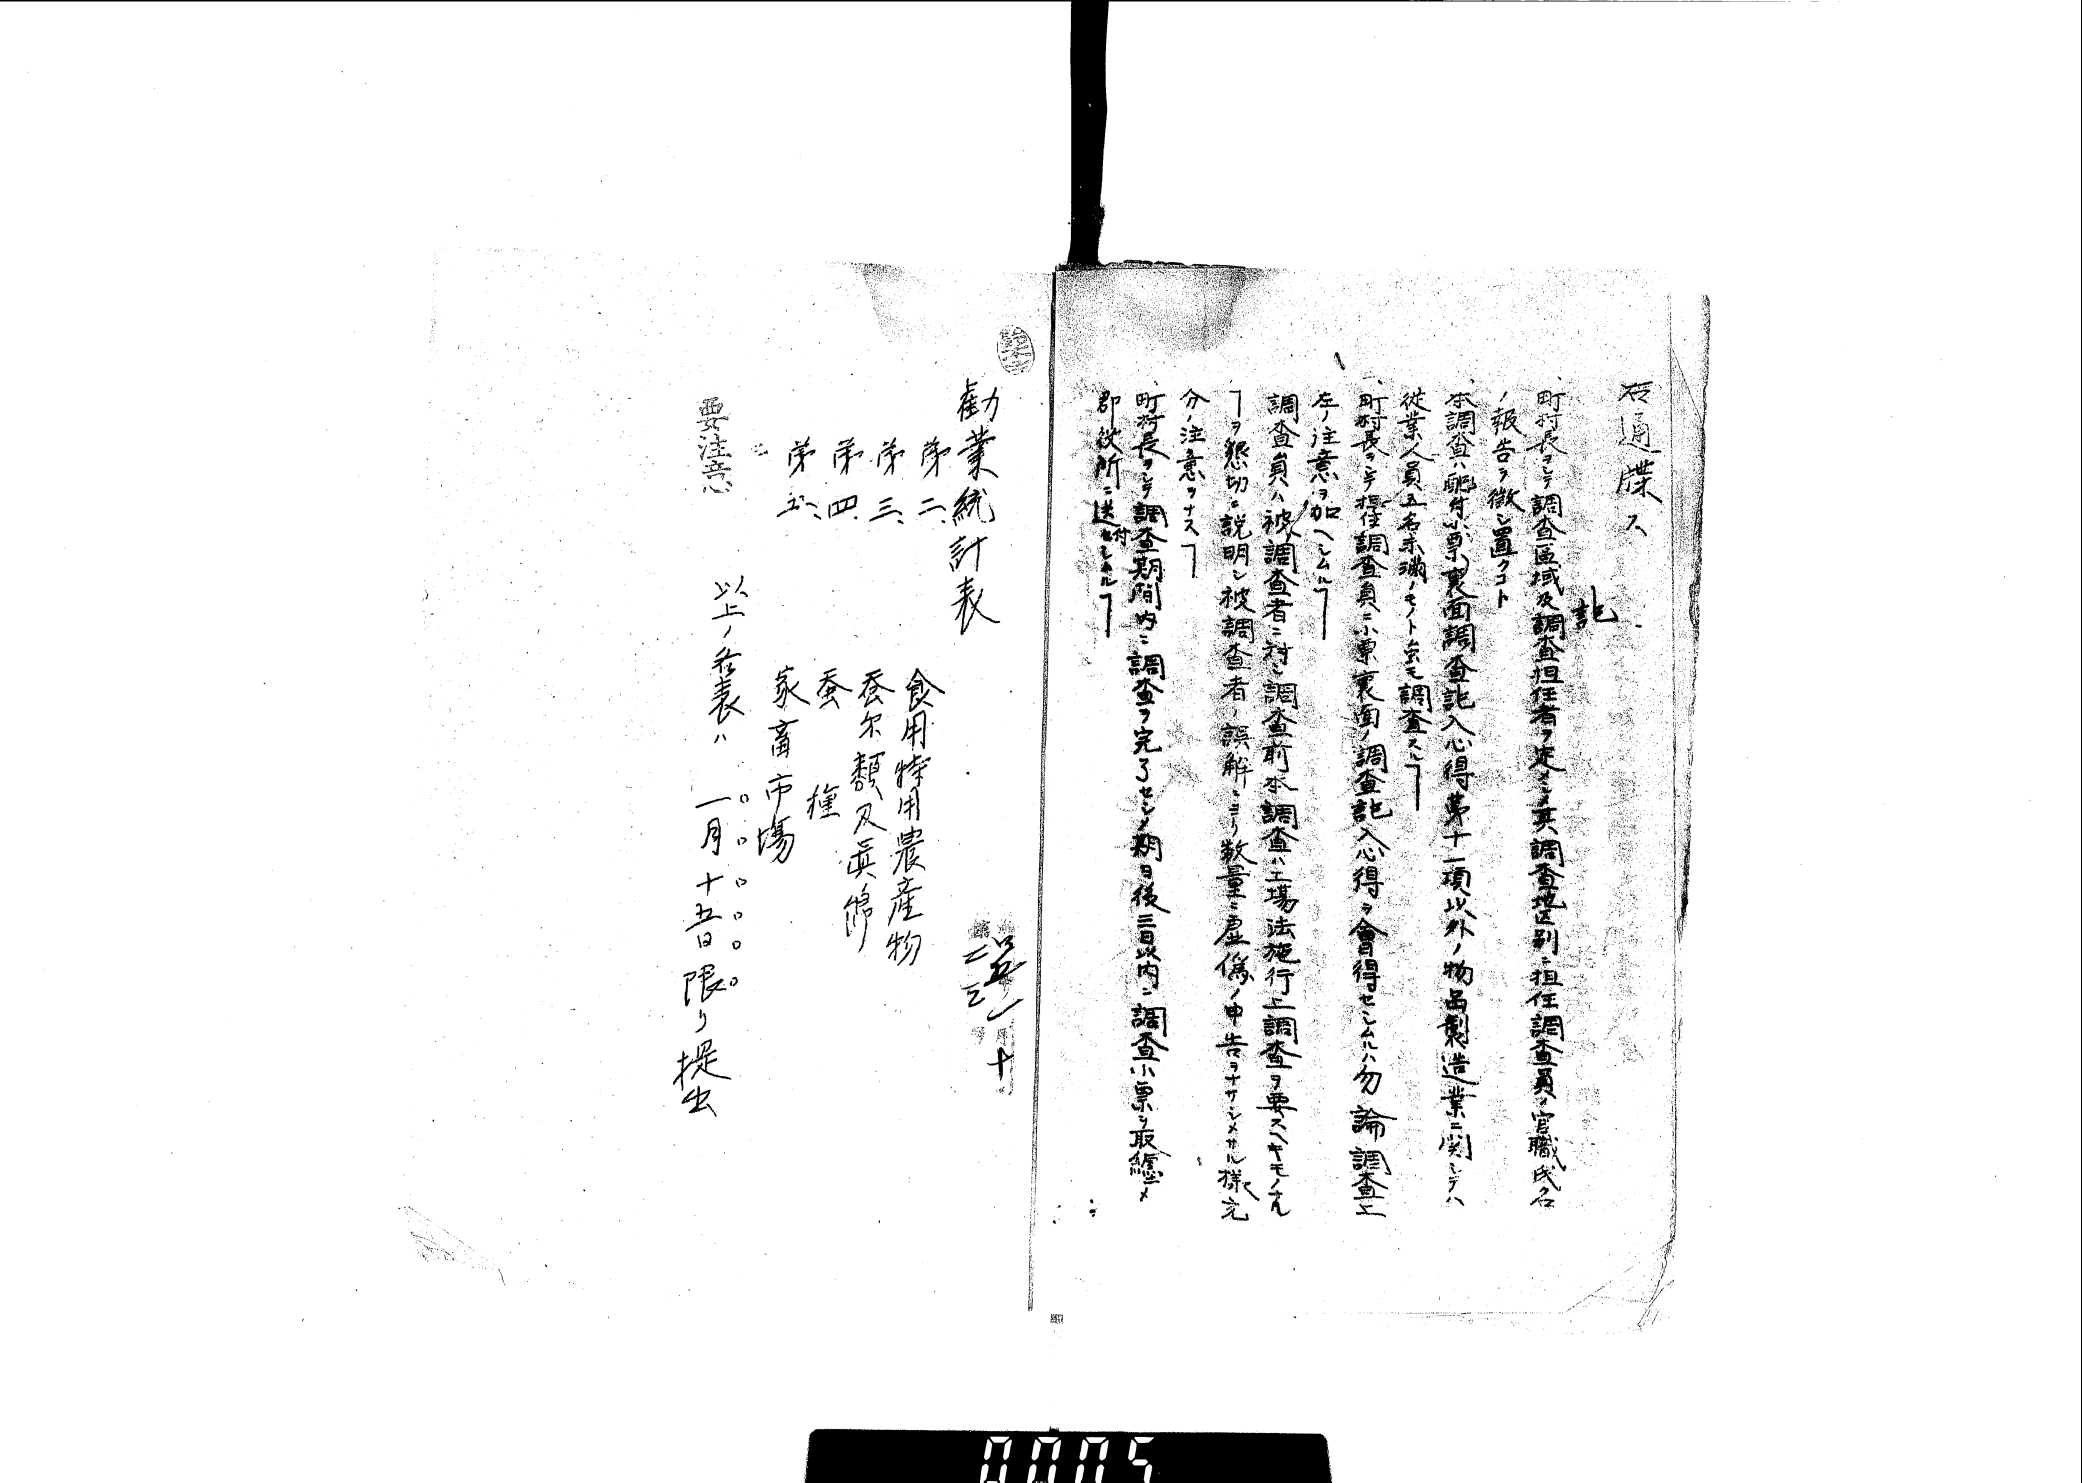 右通牒ス
記
、町村長ヲシテ調査区域及調査担任者ヲ定メシメ其調査地区別ニ担任調査員ノ官職氏名
ノ報告ヲ徴シ置クコト
、本調査ハ配付小票裏面調査記入心得第十一項以外ノ物品製造業ニ関シテハ
従業人員五名未満ノモノト雖モ調査スルヿ
一、町村長ヲシテ担任調査員ニ小票裏面ノ調査記入心得ヲ會得セシムルハ勿論調査上
左ノ注意ヲ加ヘシムルヿ
調査員ハ被調査者ニ対シ調査前本調査ハ工場法施行上調査ヲ要スヘキモノナル
ヿヲ懇切ニ説明シ被調査者ノ誤解ニヨリ数量ニ虚偽ノ申告ヲナサシメサル様充
分ノ注意ヲナスヿ
、町村長ヲシテ調査期間内ニ調査ヲ完了セシメ期日後三日以内ニ調査小票ヲ取纏メ
郡役所ニ送付セシムルヿ
勧業統計表
第二、食用特用農産物
第三、蚕糸類及真綿
第四、蚕種
第五、家畜市場
以上ノ各表ハ一月十五日限リ提出
要注意
0005